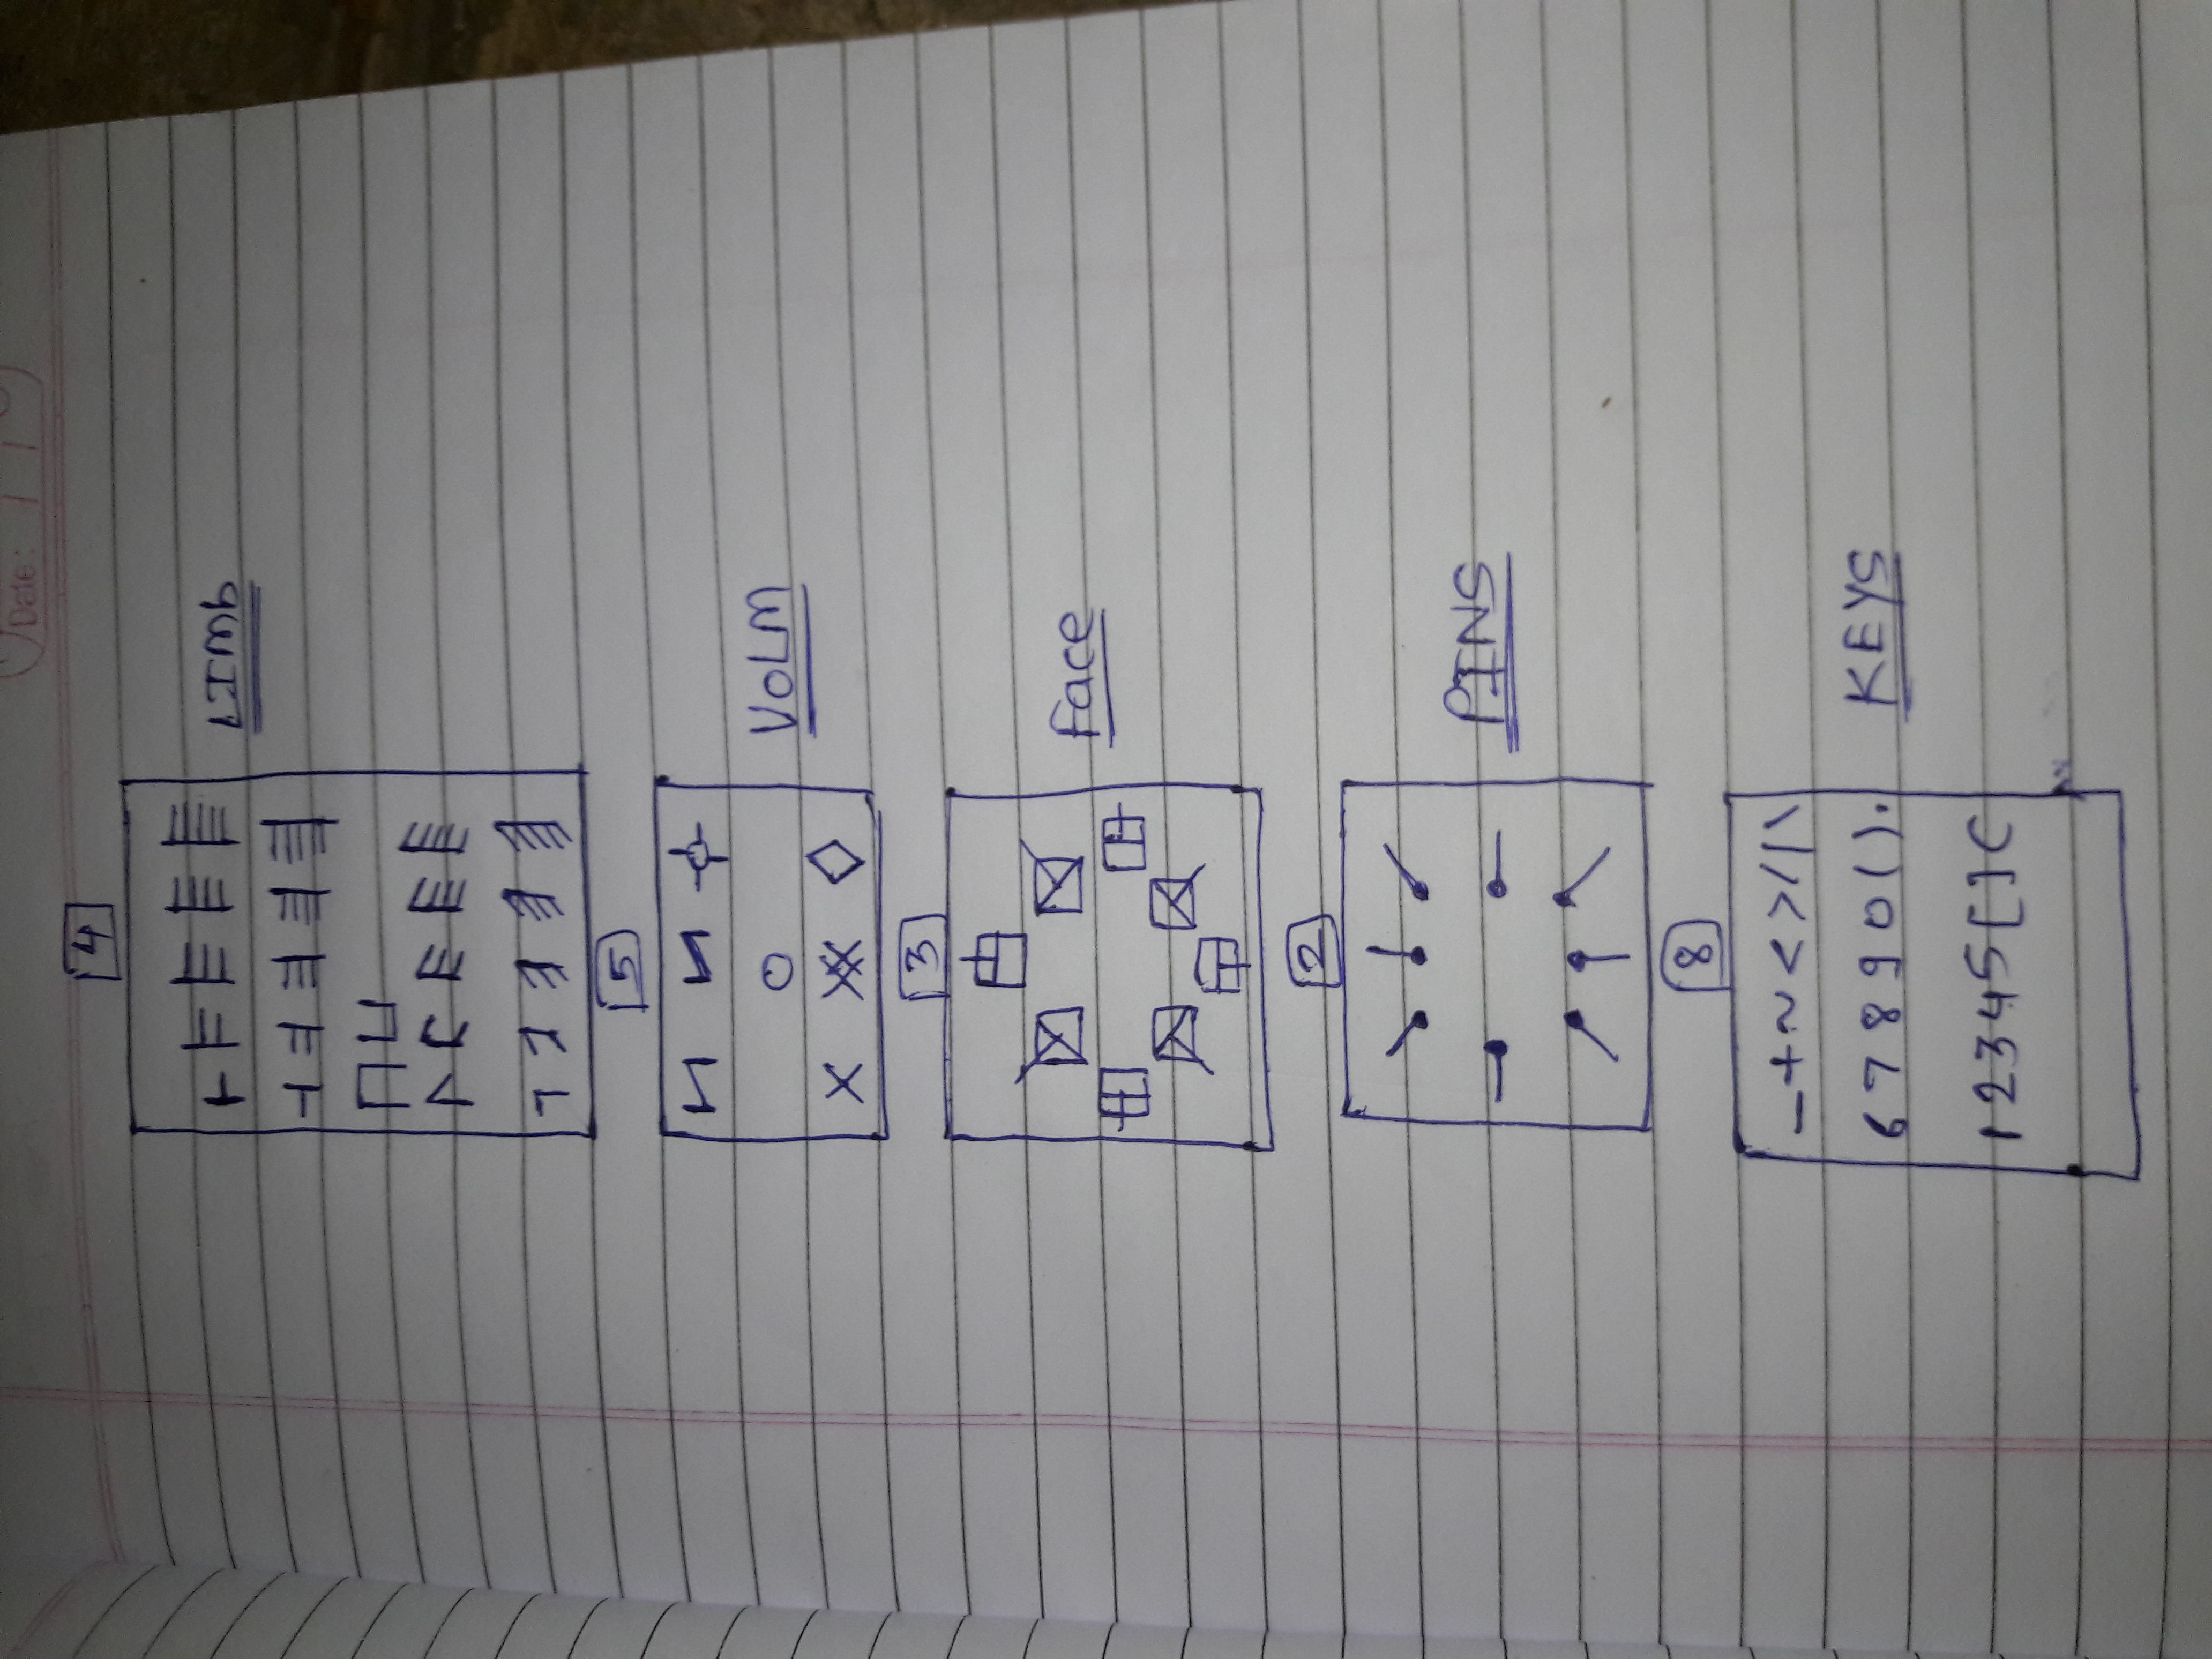 Date:
4
LIMb
5
VOLM
3
Face
2
PINS
8
- + ~ < > / | \
6 7 8 9 0 ( ) .
KEYS
1 2 3 4 5 [ ] C